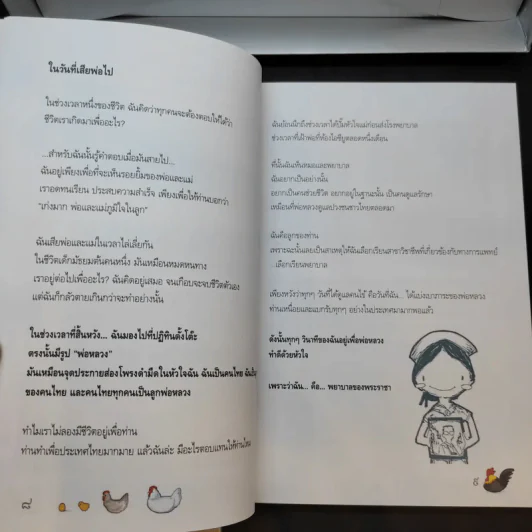 ในวันที่เสียพ่อไป
ในช่วงเวลาหนึ่งของชีวิต ฉันคิดว่าทุกคนจะต้องตอบให้ได้ว่า
ชีวิตเราเกิดมาเพื่ออะไร?
...สำหรับฉันนั้นรู้คำตอบเมื่อมันสายไป...
ฉันอยู่เพียงเพื่อที่จะเห็นรอยยิ้มของพ่อและแม่
เราอดทนเรียน ประสบความสำเร็จ เพียงเพื่อให้ท่านบอกว่า
"เก่งมาก พ่อและแม่ภูมิใจในลูก"
ฉันเสียพ่อและแม่ในเวลาไล่เลี่ยกัน
ในชีวิตเด็กมัธยมต้นคนหนึ่ง มันเหมือนหมดหนทาง
เราอยู่ต่อไปเพื่ออะไร? ฉันคิดอยู่เสมอ จนเกือบจะจบชีวิตตัวเอง
แต่ฉันก็กลัวตายเกินกว่าจะทำอย่างนั้น
ในช่วงเวลาที่สิ้นหวัง... ฉันมองไปที่ปฏิทินตั้งโต๊ะ
ตรงนั้นมีรูป "พ่อหลวง"
มันเหมือนจุดประกายส่องโพรงดำมืดในหัวใจฉัน ฉันเป็นคนไทย ฉันเป็นลูก
ของคนไทย และคนไทยทุกคนเป็นลูกพ่อหลวง
ทำไมเราไม่ลองมีชีวิตอยู่เพื่อท่าน
ท่านทำเพื่อประเทศไทยมากมาย แล้วฉันล่ะ มีอะไรตอบแทนให้ท่านไหม
๘
ฉันย้อนนึกถึงช่วงเวลาได้ปั๊มหัวใจแม่ก่อนส่งโรงพยาบาล
ช่วงเวลาที่เฝ้าพ่อที่ห้องไอซียูตลอดหนึ่งเดือน
ที่นั้นฉันเห็นหมอและพยาบาล
ฉันอยากเป็นอย่างนั้น
อยากเป็นคนช่วยชีวิต อยากอยู่ในฐานะนั้น เป็นคนดูแลรักษา
เหมือนที่พ่อหลวงดูแลปวงชนชาวไทยตลอดมา
ฉันคือลูกของท่าน
เพราะฉะนั้นเลยเป็นสาเหตุให้ฉันเลือกเรียนสาขาวิชาชีพที่เกี่ยวข้องกับทางการแพทย์
...เลือกเรียนพยาบาล
เพียงหวังว่าทุกๆ วันที่ได้ดูแลคนไข้ คือวันที่ฉัน... ได้แบ่งเบาภาระของพ่อหลวง
ท่านเหนื่อยและแบกรับทุกๆ อย่างในประเทศมามากพอแล้ว
ดังนั้นทุกๆ วินาทีของฉันอยู่เพื่อพ่อหลวง
ทำดีด้วยหัวใจ
เพราะว่าฉัน... คือ... พยาบาลของพระราชา
๙